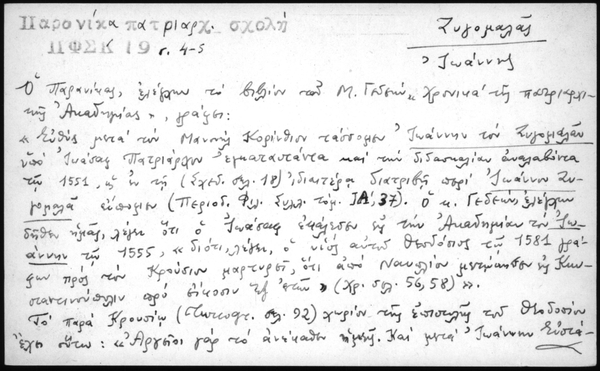 Παρανίκα πατριαρχ. σχολή
ΠΦΣΚ 19 σ. 4-5
Ζυγομαλᾶς
Ἰωάννης
Ὁ Παρανίκας, ἐλέγχων τὸ βιβλίον τοῦ Μ. Γεδεών « Χρονικὰ τῆς πατριαρχι-
κῆς Ἀκαδημίας », γράφει:
« Εὐθὺς μετὰ τὸν Μανουὴλ Κορίνθιον τάσσομεν Ἰωάννην τὸν Ζυγομαλᾶν
ὑπὸ Ἰωάσαφ Πατριάρχου ἐγκαταστάντα καὶ τὴν διδασκαλίαν ἀναλαβόντα
τῷ 1551, ὡς ἐν τῇ (Σχεδ. σελ. 18) ἰδιαιτέρᾳ διατριβῇ περὶ Ἰωάννου Ζυ-
γομαλᾶ εἴπομεν (Περιοδ. Φιλ. Συλλ. τόμ. ΙΑ, 37). Ὁ κ. Γεδεὼν ἐλέγχων
δῆθεν ἡμᾶς, λέγει ὅτι ὁ Ἰωάσαφ ἐκάλεσεν εἰς τὴν Ἀκαδημίαν τὸν Ἰω-
άννην τῷ 1555, « διότι, λέγει, ὁ υἱὸς αὐτοῦ Θεοδόσιος τῷ 1581 γρά-
φων πρὸς τὸν Κρούσιον μαρτυρεῖ, ὅτι ἀπὸ Ναυπλίου μετῴκησεν εἰς Κων-
σταντινούπολιν πρὸ εἴκοσιν ἓξ ἐτῶν » (Χρ. σελ. 56, 58) ».
Τὸ παρὰ Κρουσίῳ (Turcogr. σελ. 92) χωρίον τῆς ἐπιστολῆς τοῦ Θεοδοσίου
ἔχει οὕτω: « Ἀργεῖοι γὰρ τὸ ἀνέκαθεν ἡμεῖς. Καὶ μετὰ Ἰωάννην Εὐστά-